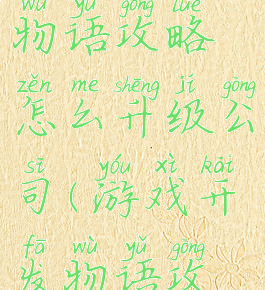 wù yǔ gōng lüè
物语攻略
zěn me shēng jí gōng
怎么升级公
sī yóu xì kāi
司(游戏开
fā wù yǔ gōng
发物语攻